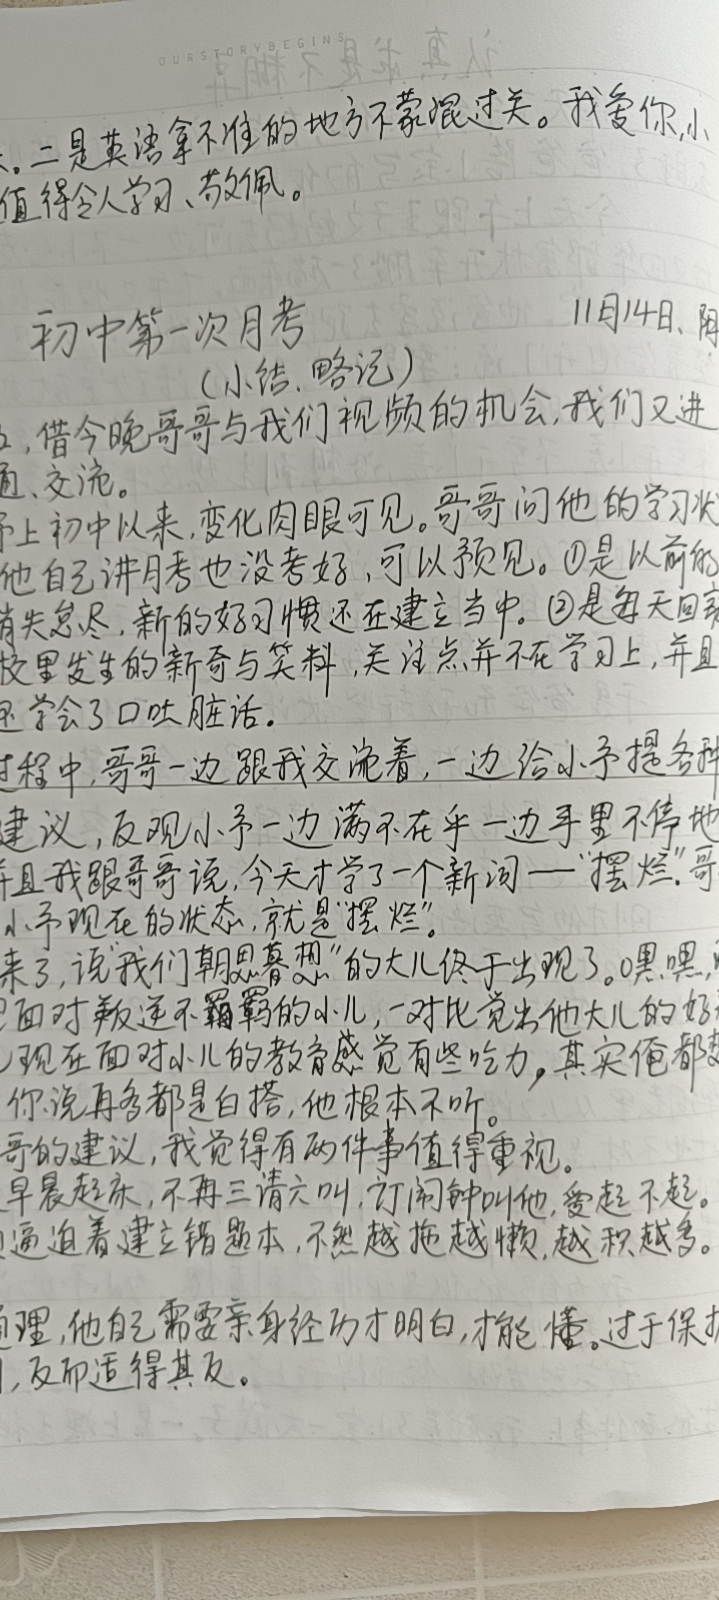 OURSTORYBEGINS
。二是英语拿不准的地方不蒙混过关。我爱你,小
值得令人学习、敬佩。
初中第一次月考
11月14日、阴
(小结、略记)
,借今晚哥哥与我们视频的机会,我们又进
通、交流。
予上初中以来,变化肉眼可见。哥哥问他的学习状
他自己讲月考也没考好,可以预见。①是以前的
消失怠尽,新的好习惯还在建立当中。②是每天回家
校里发生的新奇与笑料,关注点并不在学习上,并且
还学会了口吐脏话。
过程中,哥哥一边跟我交流着,一边给小予提各种
建议,反观小予一边满不在乎一边手里不停地
并且我跟哥哥说,今天才学了一个新词——“摆烂”。哥
小予现在的状态,就是“摆烂”。
来了,说“我们朝思暮想”的大儿终于出现了。嘿嘿,
面对叛逆不羁的小儿,一对比觉出他大儿的好
现在面对小儿的教育感觉有些吃力,其实俺都
你说再多都是白搭,他根本不听。
哥的建议,我觉得有两件事值得重视。
早晨起床,不再三请六叫,订闹钟叫他,爱起不起。
逼迫着建立错题本,不然越拖越懒,越积越多。
道理,他自己需要亲身经历才明白,才能懂。过于保护
,反而适得其反。